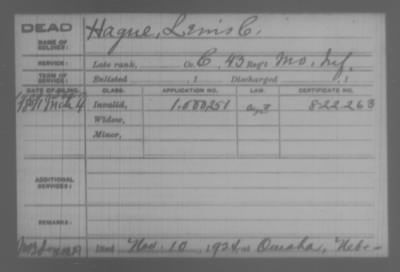 DEAD
NAME OF SOLDIER: Hague, Lewis C.
SERVICE: Late rank, Co. C, 43 Reg't Mo. Inf.
TERM OF SERVICE: Enlisted , 1 Discharged , 1
DATE OF FILING. CLASS. APPLICATION NO. LAW. CERTIFICATE NO.
Invalid, 1,000,251 822.263
Widow,
Minor,
ADDITIONAL SERVICES:
REMARKS:
Died Nov. 10, 1924 at Omaha, Nebr